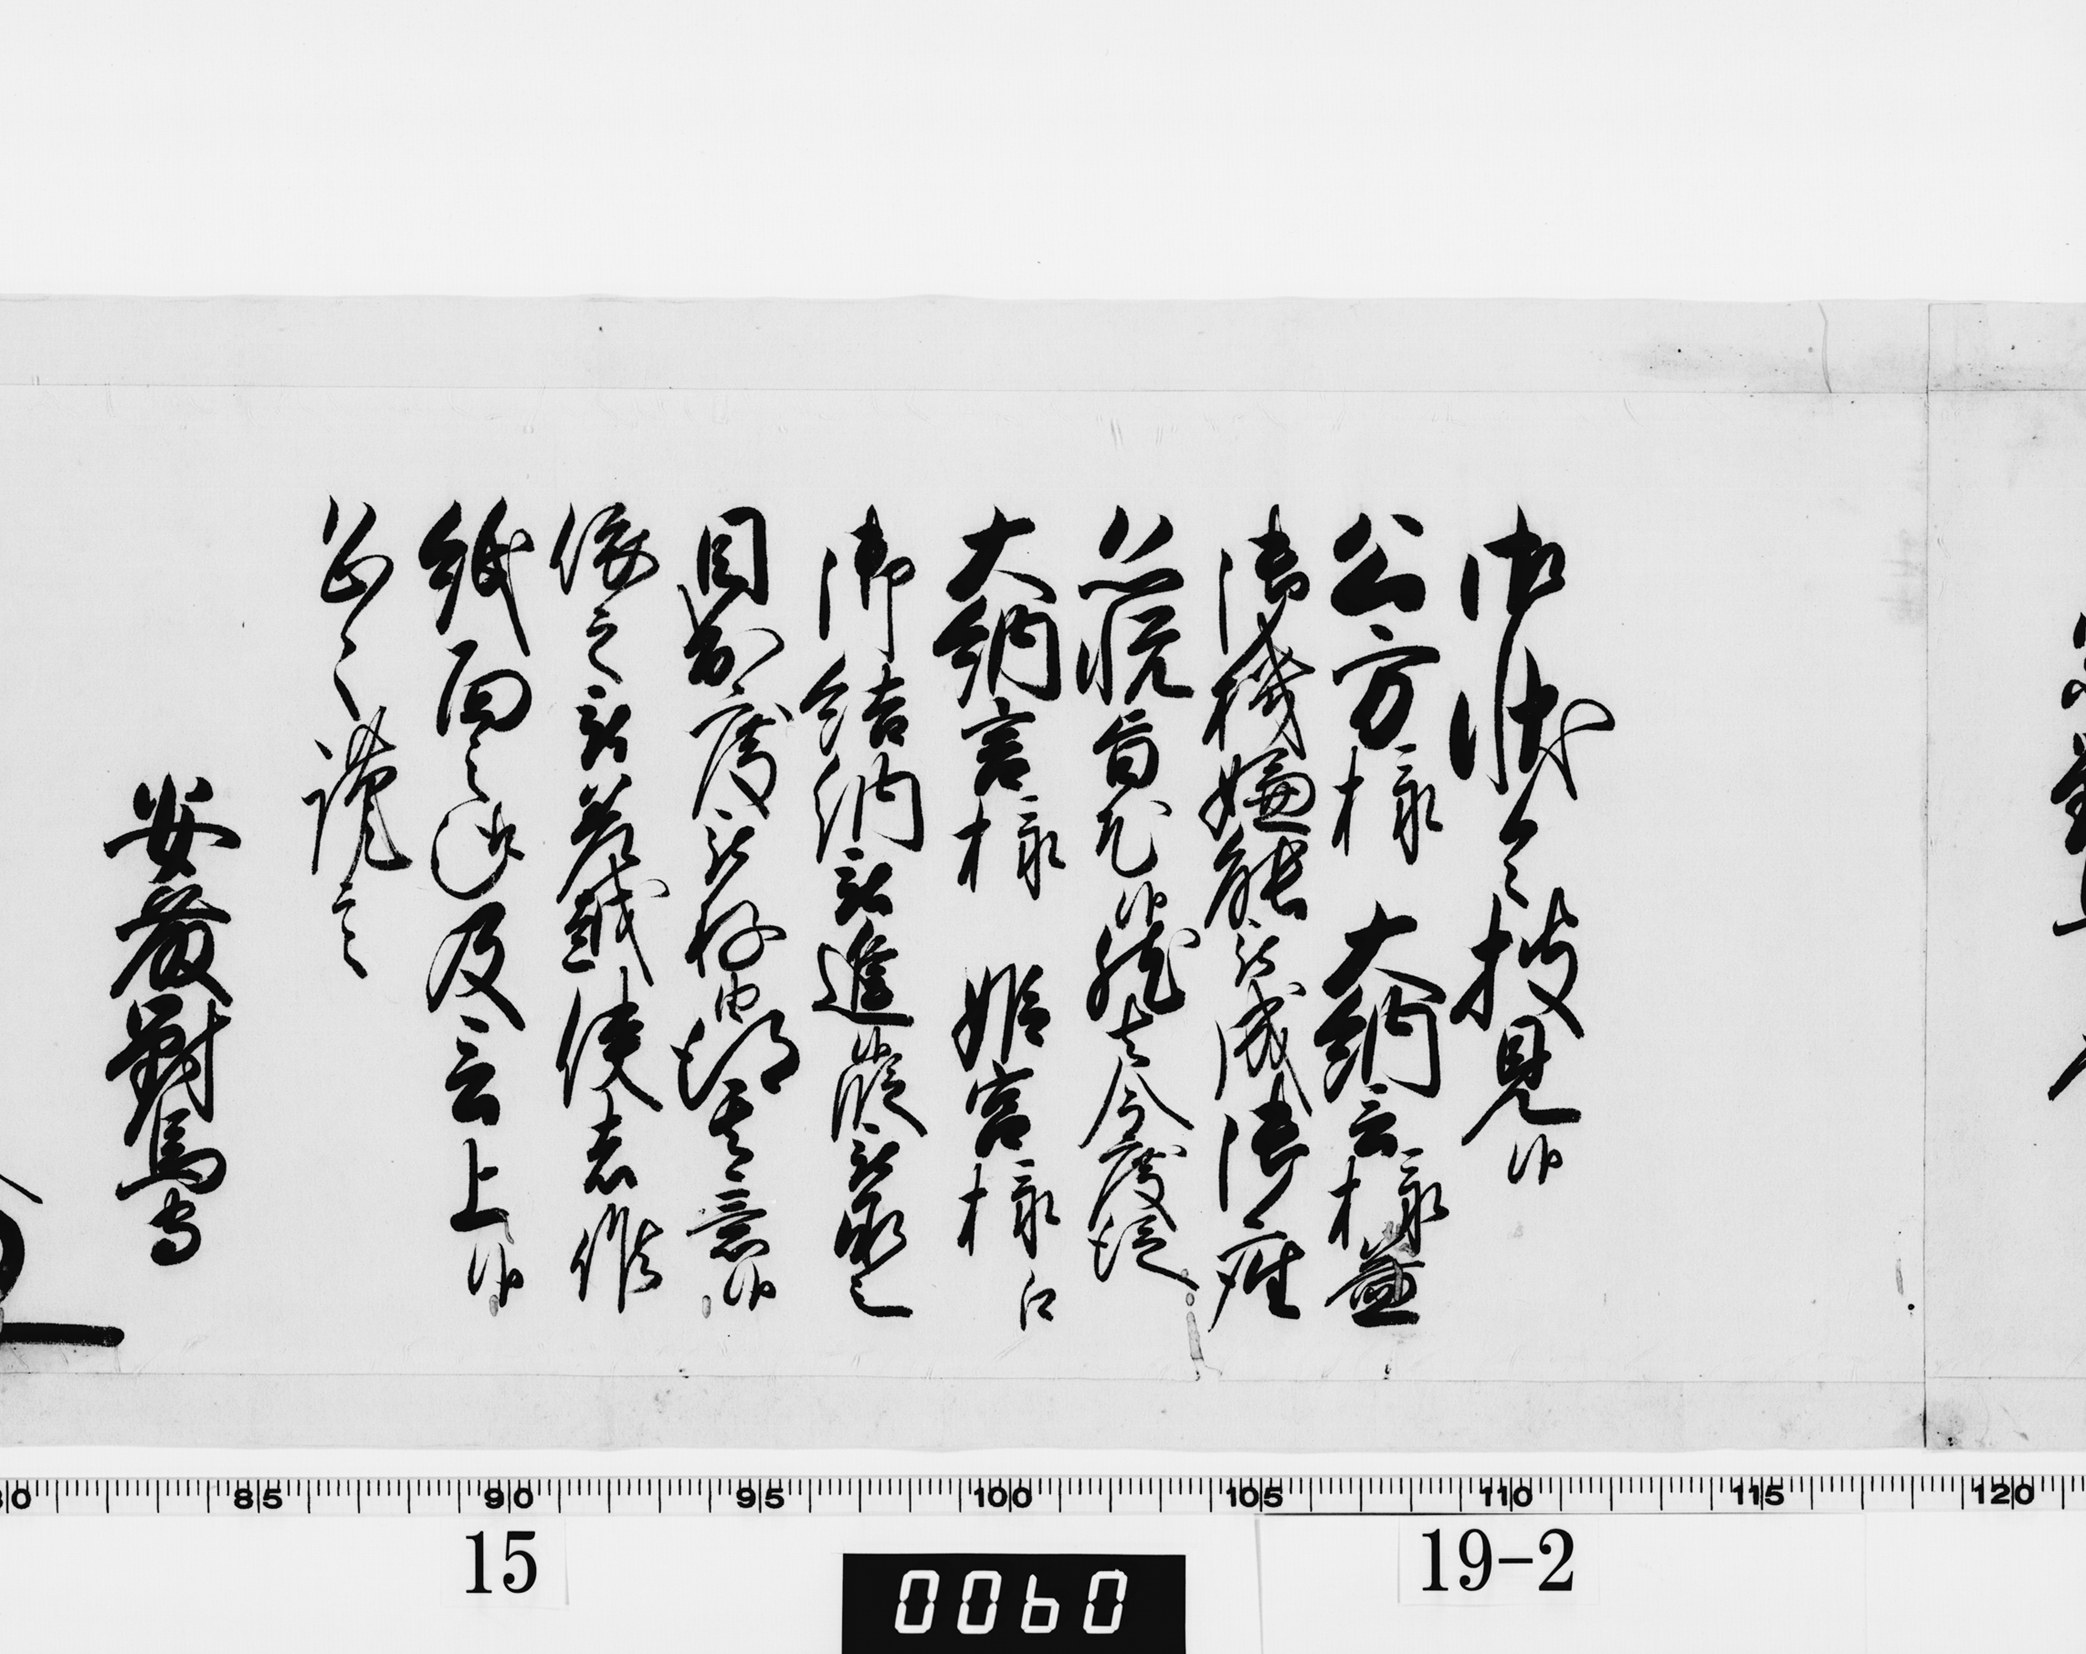 御状令披見候
公方様 大納言様益
御機嫌能被成御座
恐悦旨尤候然者今度従
大納言様 姫宮様江
御結納被進候段被承之
目出度被存由得其意候
依之被差越使者候
紙面之趣及言上候
恐々謹言
安藤對馬守
80 85 90 95 100 105 110 115 120
15
19-2
0060